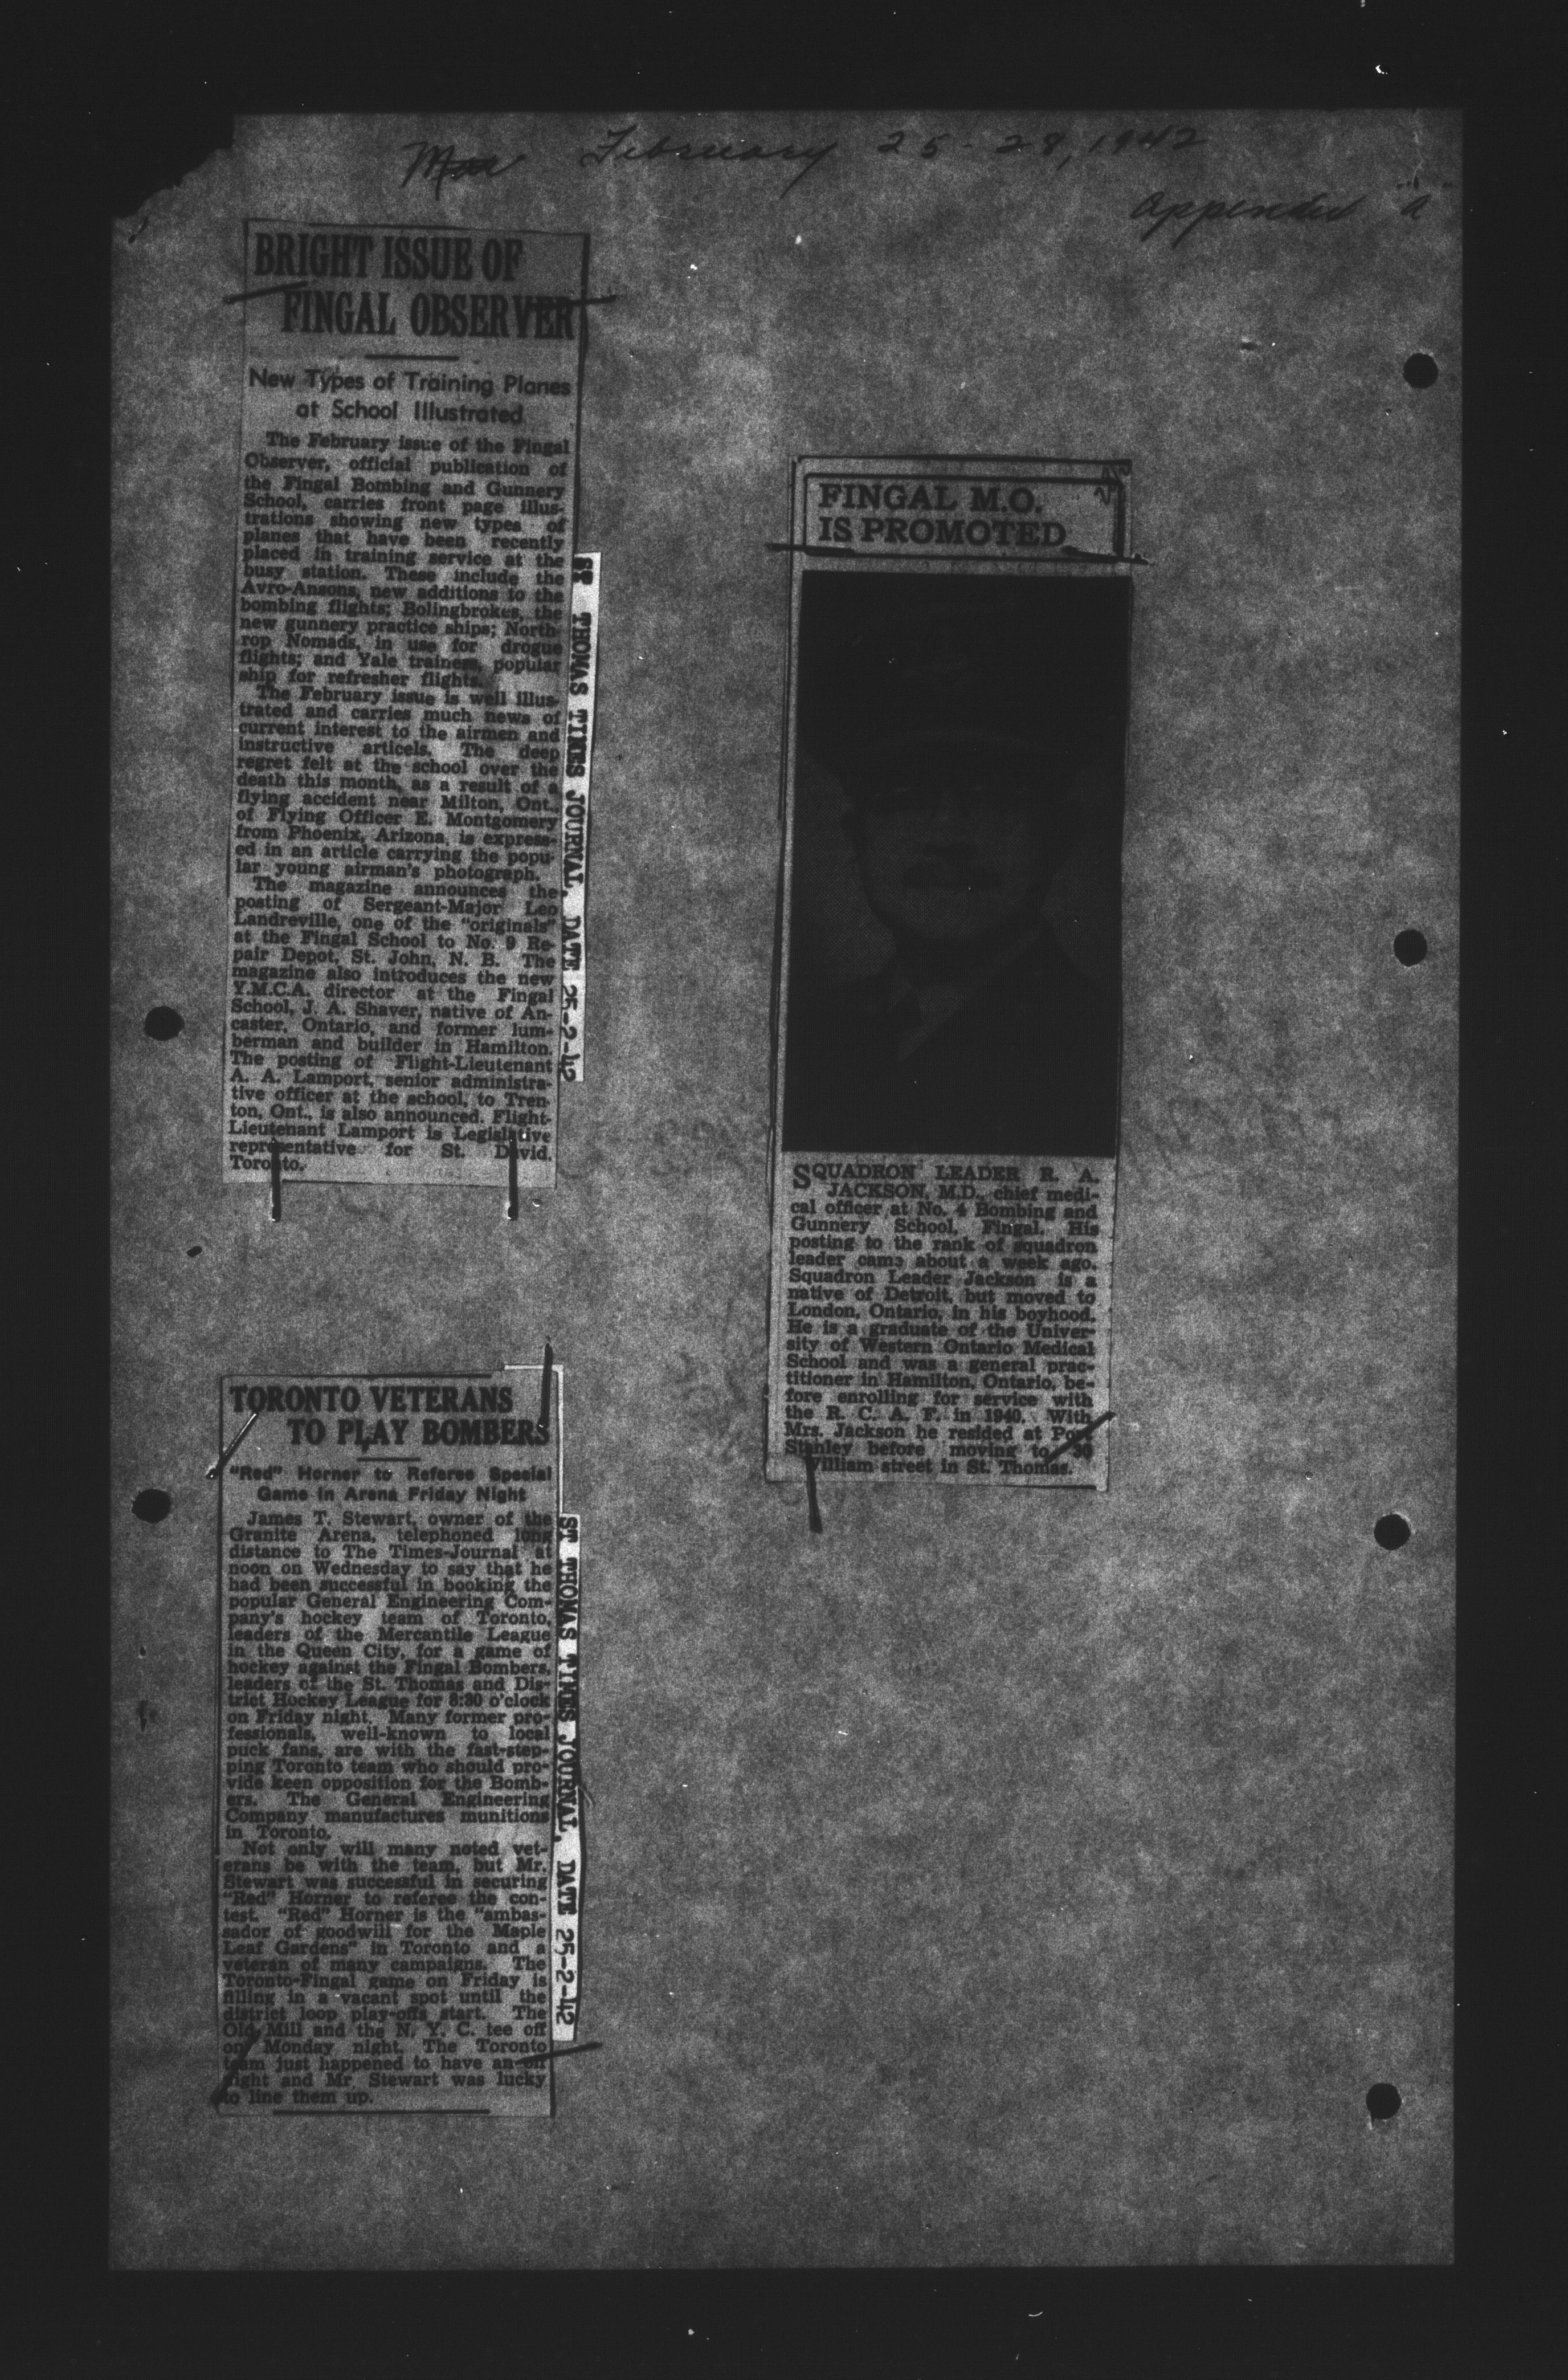 February 25-28, 1942
BRIGHT ISSUE OF
FINGAL OBSERVER
New Types of Training Planes
at School Illustrated
The February issue of the Fingal
Observer, official publication of
the Fingal Bombing and Gunnery
School, carries front page illus-
trations showing new types of
planes that have been recently
placed in training service at the
busy station. These include the
Avro-Ansons, new additions to the
bombing flights; Bolingbrokes, the
new gunnery practice ships; North-
rop Nomads, in use for drogue
flights; and Yale trainers, popular
ship for refresher flights.
The February issue is well illus-
trated and carries much news of
current interest to the airmen and
instructive articels. The deep
regret felt at the school over the
death this month, as a result of a
flying accident near Milton, Ont.,
of Flying Officer E. Montgomery
from Phoenix, Arizona, is express-
ed in an article carrying the popu-
lar young airman's photograph.
The magazine announces the
posting of Sergeant-Major Leo
Landreville, one of the "originals"
at the Fingal School to No. 9 Re-
pair Depot, St. John, N. B. The
magazine also introduces the new
Y.M.C.A. director at the Fingal
School, J. A. Shaver, native of An-
caster, Ontario, and former lum-
berman and builder in Hamilton.
The posting of Flight-Lieutenant
A. A. Lamport, senior administra-
tive officer at the school, to Tren-
ton, Ont., is also announced. Flight-
Lieutenant Lamport is Legislative
representative for St. David,
Toronto.
ST THOMAS TIMES JOURNAL, DATE 25-2-42
TORONTO VETERANS
TO PLAY BOMBERS
"Red" Horner to Referee Special
Game in Arena Friday Night
James T. Stewart, owner of the
Granite Arena, telephoned long
distance to The Times-Journal at
noon on Wednesday to say that he
had been successful in booking the
popular General Engineering Com-
pany's hockey team of Toronto,
leaders of the Mercantile League
in the Queen City, for a game of
hockey against the Fingal Bombers,
leaders of the St. Thomas and Dis-
trict Hockey League for 8:30 o'clock
on Friday night. Many former pro-
fessionals, well-known to local
puck fans, are with the fast-step-
ping Toronto team who should pro-
vide keen opposition for the Bomb-
ers. The General Engineering
Company manufactures munitions
in Toronto.
Not only will many noted vet-
erans be with the team, but Mr.
Stewart was successful in securing
"Red" Horner to referee the con-
test. "Red" Horner is the "ambas-
sador of goodwill for the Maple
Leaf Gardens" in Toronto and a
veteran of many campaigns. The
Toronto-Fingal game on Friday is
filling in a vacant spot until the
district loop play-offs start. The
Old Mill and the N. Y. C. tee off
on Monday night. The Toronto
team just happened to have an off
night and Mr. Stewart was lucky
to line them up.
ST THOMAS TIMES JOURNAL, DATE 25-2-42
FINGAL M.O.
IS PROMOTED
SQUADRON LEADER R. A.
JACKSON, M.D., chief medi-
cal officer at No. 4 Bombing and
Gunnery School, Fingal. His
posting to the rank of squadron
leader came about a week ago.
Squadron Leader Jackson is a
native of Detroit, but moved to
London, Ontario, in his boyhood.
He is a graduate of the Univer-
sity of Western Ontario Medical
School and was a general prac-
titioner in Hamilton, Ontario, be-
fore enrolling for service with
the R. C. A. F. in 1940. With
Mrs. Jackson he resided at Port
Stanley before moving to 30
William street in St. Thomas.